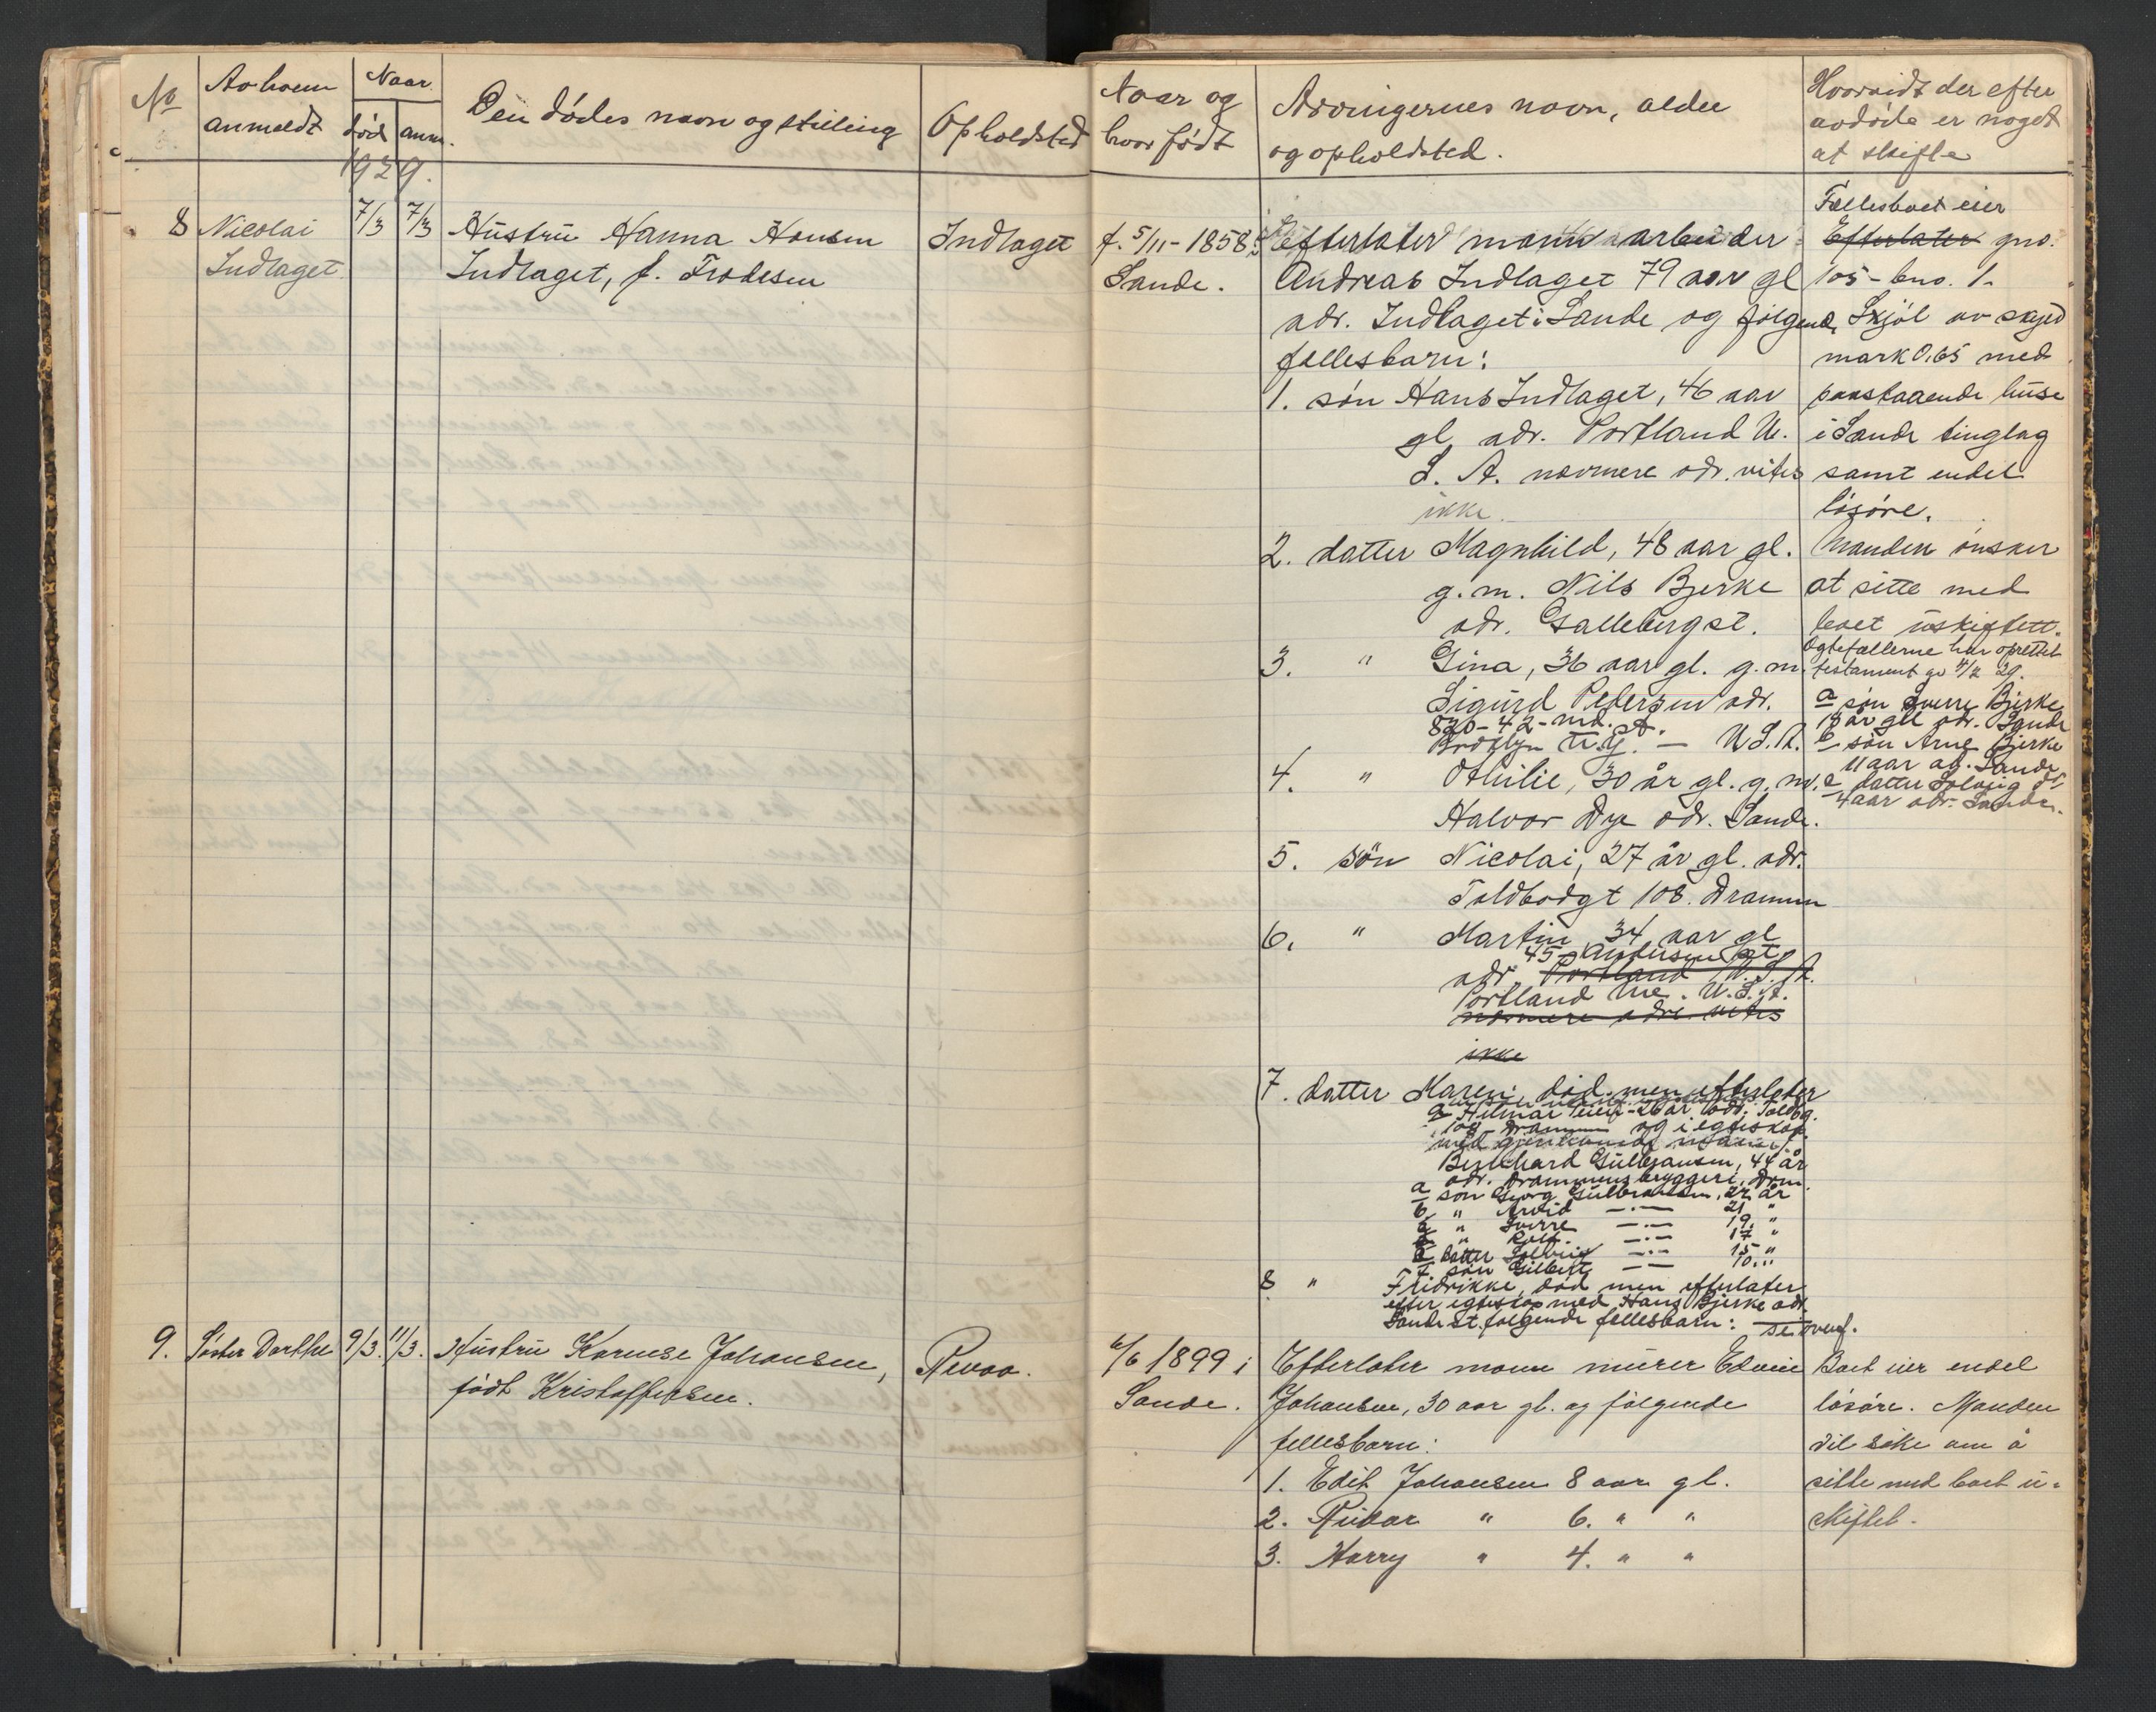 No
Av hvem
anmeldt
Naar
død
anm.
Den dødes navn og stilling
Opholdsted
Naar og
hvor født
Arvingernes navn, alder
og opholdsted.
Hvorvidt der efter
avdøde er noget
at skifte
1929.
8
Nicolai
Indlaget
7/3
7/3
Hustru Hanna Hansen
Indlaget, f. Frodesen
Indlaget
f. 5/11-1858 i
Sande.
Efterlater mann arbeider
Andreas Indlaget 79 aar gl
adr. Indlaget i Sande og følgende
fællesbarn:
1. søn Hans Indlaget, 46 aar
gl adr. Portland U.
S. A. nærmere adr. vites
ikke.
2. datter Magnhild, 48 aar gl.
g. m. Nils Bjerke
adr. Gallebergst.
3. " Gina, 36 aar gl. g. m.
Sigurd Pedersen adr.
820-42-nd. St.
Brooklyn N.Y. — U.S.A.
4. " Othilie, 30 år gl. g. m.
Halvor Dye adr. Sande.
5. søn Nicolai, 27 år gl. adr.
Toldbodgt 108. Drammen
6. " Martin 34 aar gl
45 Andersen st
adr Portland U.S.A.
Portland Me. U.S.A.
nærmere adr. vites
ikke
7. datter Maren, død men efterlater
Hilmar 26 år adr. Toldbg.
108 Drammen og i egteskap
med gjenlevende
Bernhard Gulbransen, 44 år
adr. Drammens bryggeri, Drm.
a søn Georg Gulbransen, 22 år
b " Arvid —·— 21 "
c " Sverre —·— 19. "
d " Rolf. —·— 17 "
e datter Solveig —·— 15 "
f søn Gilbert —— 10. "
8 " Fridrikke, død men efterlater
efter egteskap med Hans Bjerke adr.
Sande st. følgende fellesbarn: se ovenf.
Fællesboet eier
Efterlater gno.
105 - bno. 1.
Skjøl av skyld
mark 0.65 med
paastaaende huse
i Sande tinglag
samt endel
løsøre.
Manden ønsker
at sitte med
boet uskiftett.
Egtefællerne har oprettet
testament av 4/2 29.
a søn Sverre Bjerke
18 år gl adr. Sande
b søn Arne Bjerke
11 aar ad. Sande
c datter Solveig
4 aar adr. Sande.
9.
Søster Dorthe
9/3.
11/3.
Hustru Karense Johansen,
født Kristoffersen.
Revaa.
4/6 1899 i
Sande.
Efterlater mann murer Edvin
Johansen, 30 aar gl. og følgende
fellesbarn:
1. Edit Johansen 8 aar gl.
2. Reidar " 6. " "
3. Harry " 4. " "
Boet eier endel
løsøre. Manden
vil søke om å
sitte med boet u-
skiftet.